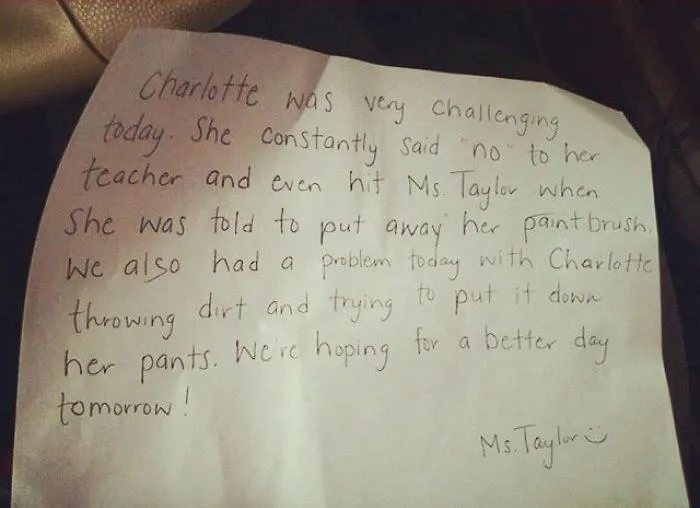 Charlotte was very challenging
today. She constantly said "no" to her
teacher and even hit Ms. Taylor when
She was told to put away her paintbrush.
We also had a problem today with Charlotte
throwing dirt and trying to put it down
her pants. We're hoping for a better day
tomorrow!
Ms. Taylor